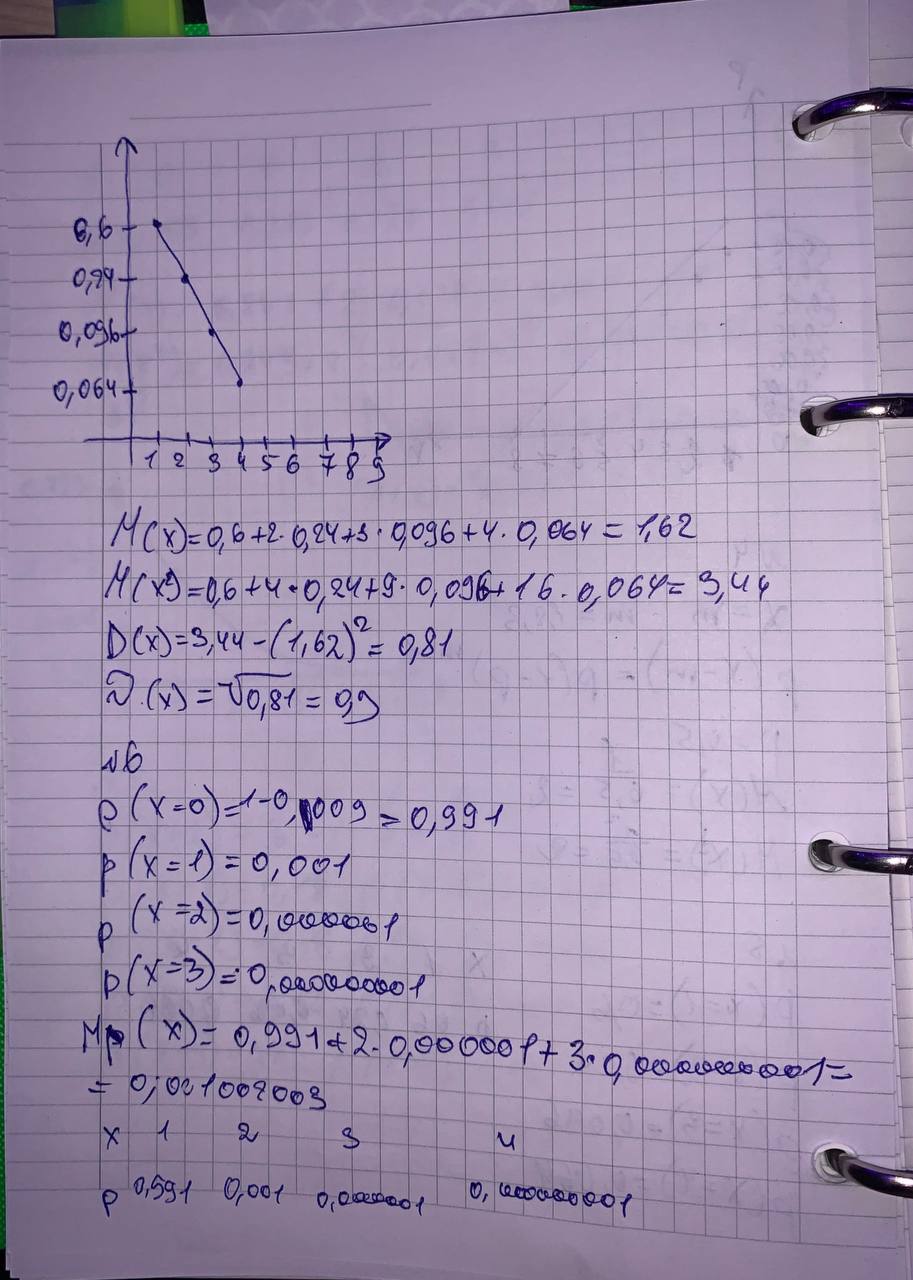 0,6
0,24
0,096
0,064
1 2 3 4 5 6 7 8 9
M(x)=0,6+2·0,24+3·0,096+4·0,064=1,62
M(x²)=0,6+4·0,24+9·0,096+16·0,064=3,44
D(x)=3,44-(1,62)²=0,81
(x)=√0,81=0,9
№6
p(x=0)=1-0,009=0,991
p(x=1)=0,001
p(x=2)=0,000001
p(x=3)=0,000000001
M(x)=0,991+2·0,000001+3·0,000000001=
=0,001002003
x 1 2 3 4
p 0,991 0,001 0,000001 0,000000001